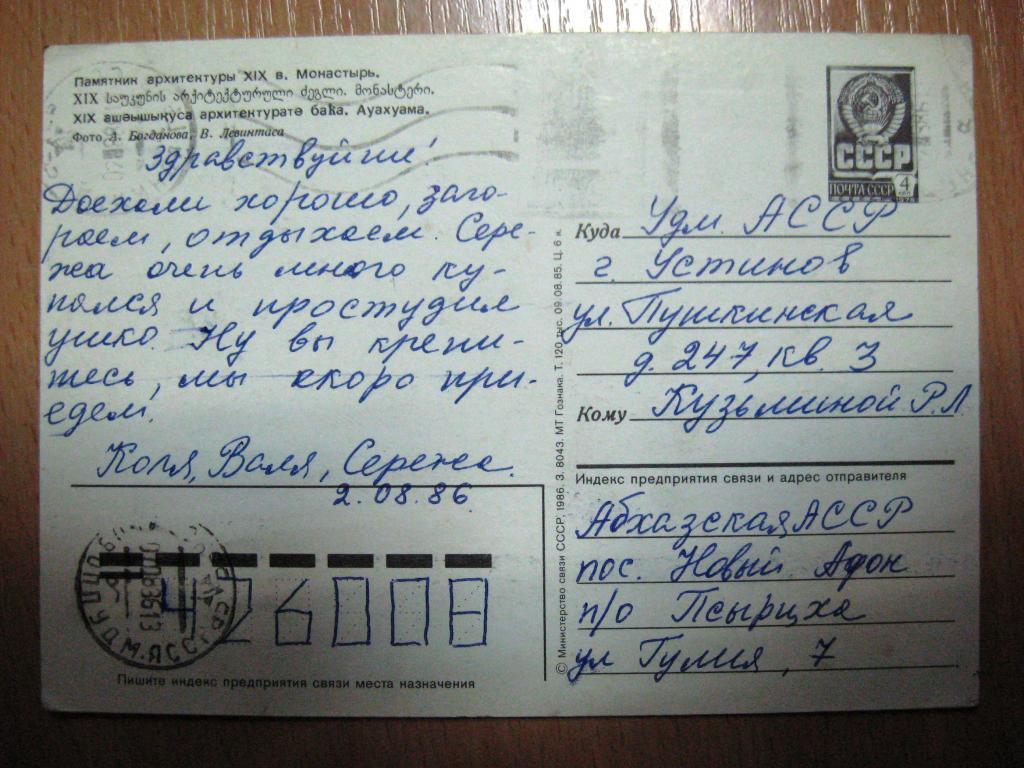 Памятник архитектуры XIX в. Монастырь.
XIX საუკუნის არქიტექტურული ძეგლი. მონასტერი.
XIX ашәышықуса архитектуратә баҟа. Ауахуама.
Фото А. Богданова, В. Левинтиса
Здравствуйте!
Доехали хорошо, заго-
раем, отдыхаем. Сере-
жа очень много ку-
пался и простудил
ушко. Ну вы крепи-
тесь, мы скоро при-
едем.
Коля, Валя, Сережа.
2.08.86
426008
Пишите индекс предприятия связи места назначения
© Министерство связи СССР, 1986. З. 8043. МТ Гознака. Т. 120 тыс. 09.08.85. Ц. 6 к.
СССР
ПОЧТА СССР 4
Куда Удм. АССР
г. Устинов
ул. Пушкинская
д. 247, кв. 3
Кому Кузьминой Р.Л.
Индекс предприятия связи и адрес отправителя
Абхазская АССР
пос. Новый Афон
п/о Псырцха
ул Гулия, 7